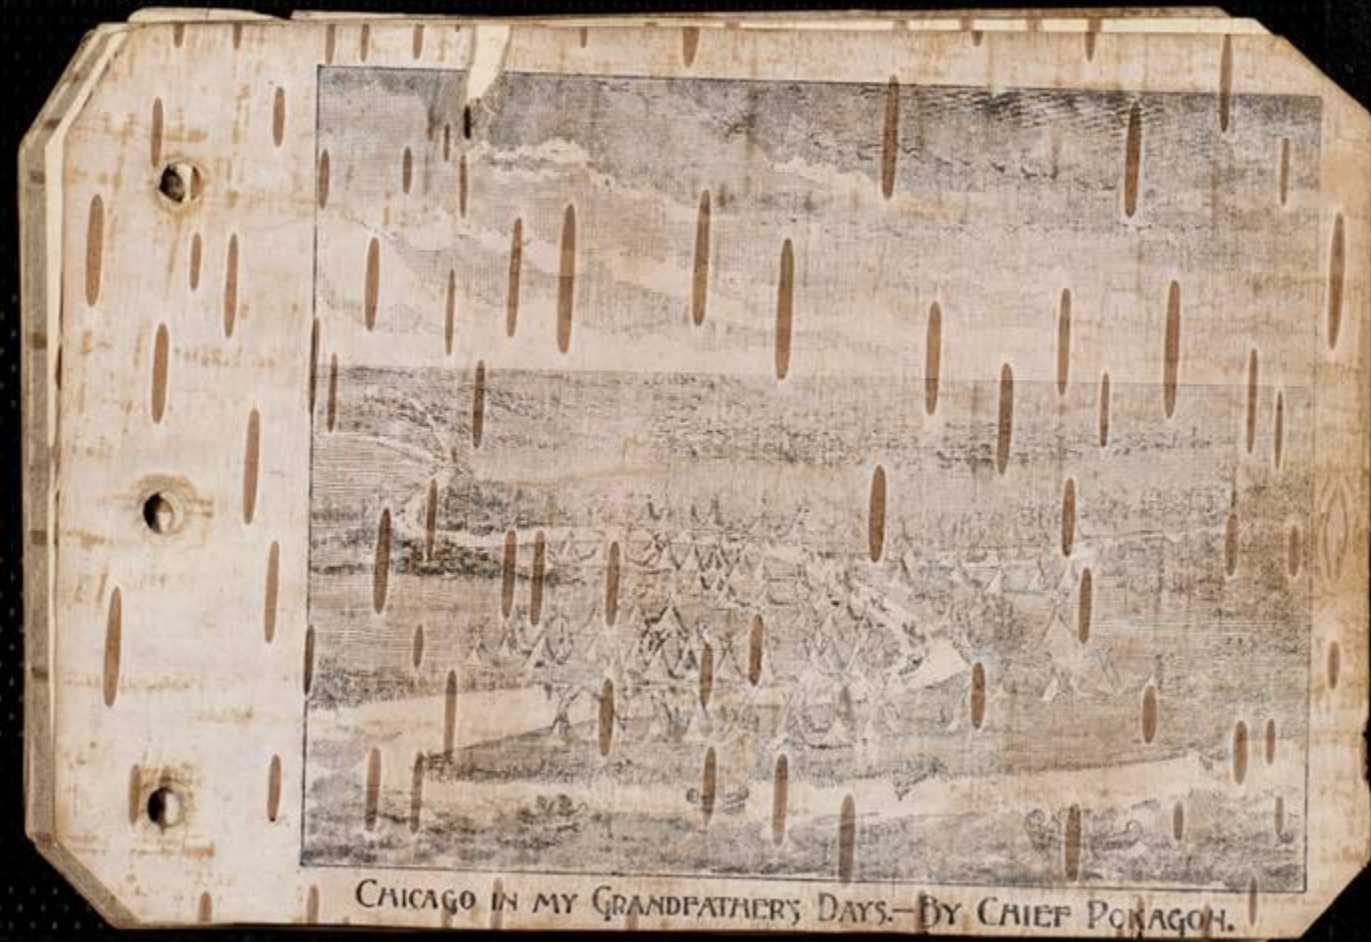 CHICAGO IN MY GRANDFATHER'S DAYS.—BY CHIEF POKAGON.